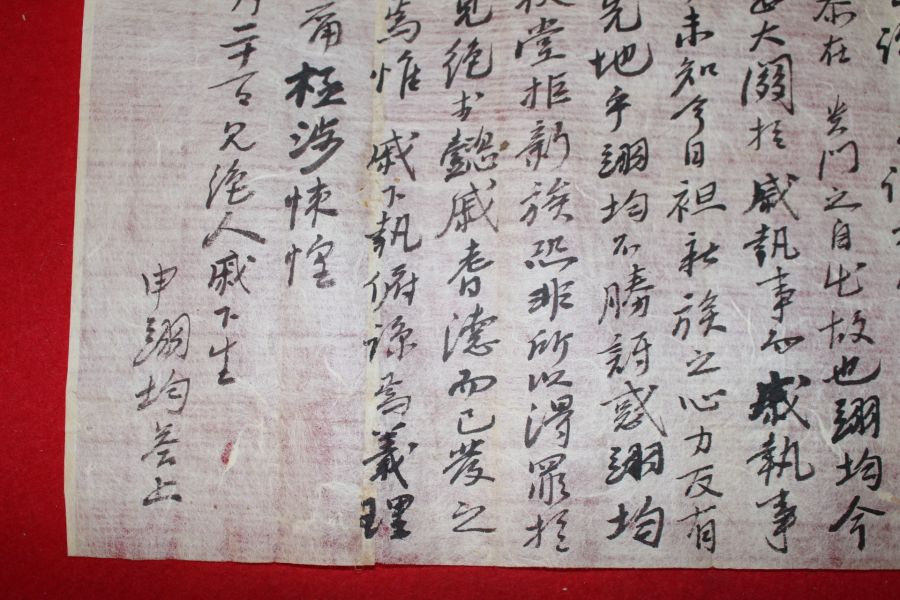 在 貴門之自出故也翊均今
大關於戚執事而戚執事
未知今日袒新族之心力反有
先地乎翊均不勝訝惑翊均
堂拒新族恐非所以得罪於
見絶於懿戚耆德而已發之
焉惟 戚下執俯諒為義理
極涉悚惶
月二十一日見絶人戚下生
申翊均答上